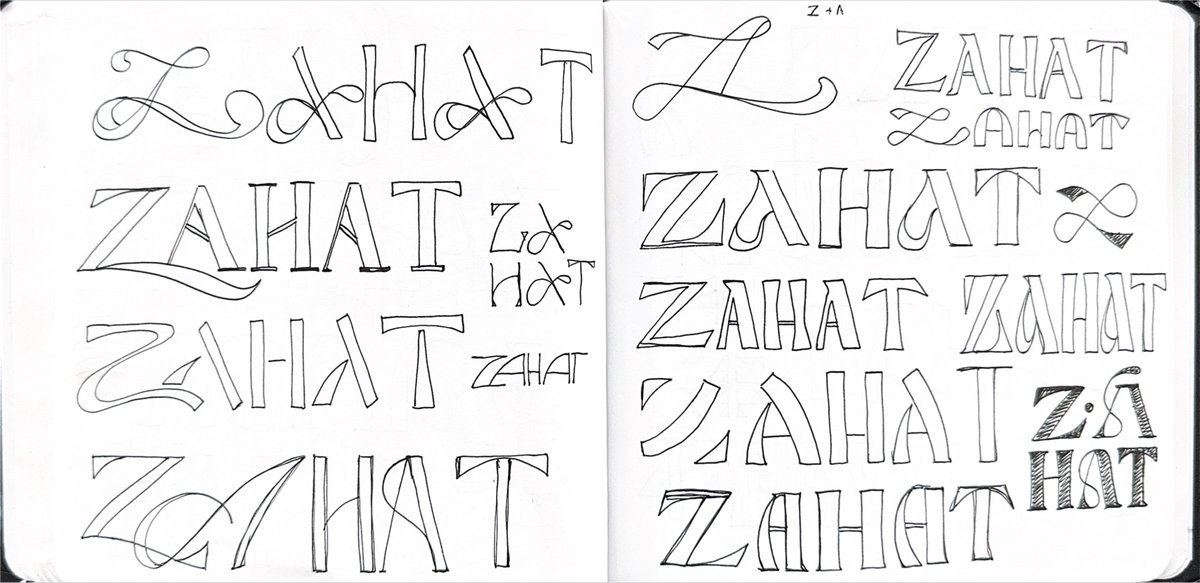 ZAHAT
ZAHAT
ZA
HAT
ZAHAT
ZAHAT
ZAHAT
Z + A
Z
ZAHAT
ZAHAT
ZAHAT
Z
ZAHAT
ZAHAT
ZAHAT
Z·A
HAT
ZAHAT